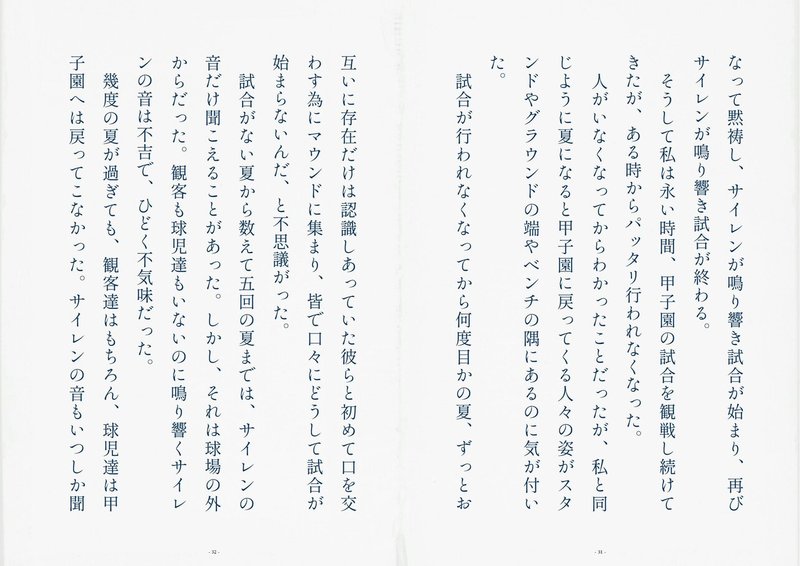 なって黙祷し、サイレンが鳴り響き試合が始まり、再び
サイレンが鳴り響き試合が終わる。
　そうして私は永い時間、甲子園の試合を観戦し続けて
きたが、ある時からパッタリ行われなくなった。
　人がいなくなってからわかったことだったが、私と同
じように夏になると甲子園に戻ってくる人々の姿がスタ
ンドやグラウンドの端やベンチの隅にあるのに気が付い
た。
　試合が行われなくなってから何度目かの夏、ずっとお
- 31 -
互いに存在だけは認識しあっていた彼らと初めて口を交
わす為にマウンドに集まり、皆で口々にどうして試合が
始まらないんだ、と不思議がった。
　試合がない夏から数えて五回の夏までは、サイレンの
音だけ聞こえることがあった。しかし、それは球場の外
からだった。観客も球児達もいないのに鳴り響くサイレ
ンの音は不吉で、ひどく不気味だった。
　幾度の夏が過ぎても、観客達はもちろん、球児達は甲
子園へは戻ってこなかった。サイレンの音もいつしか聞
- 32 -